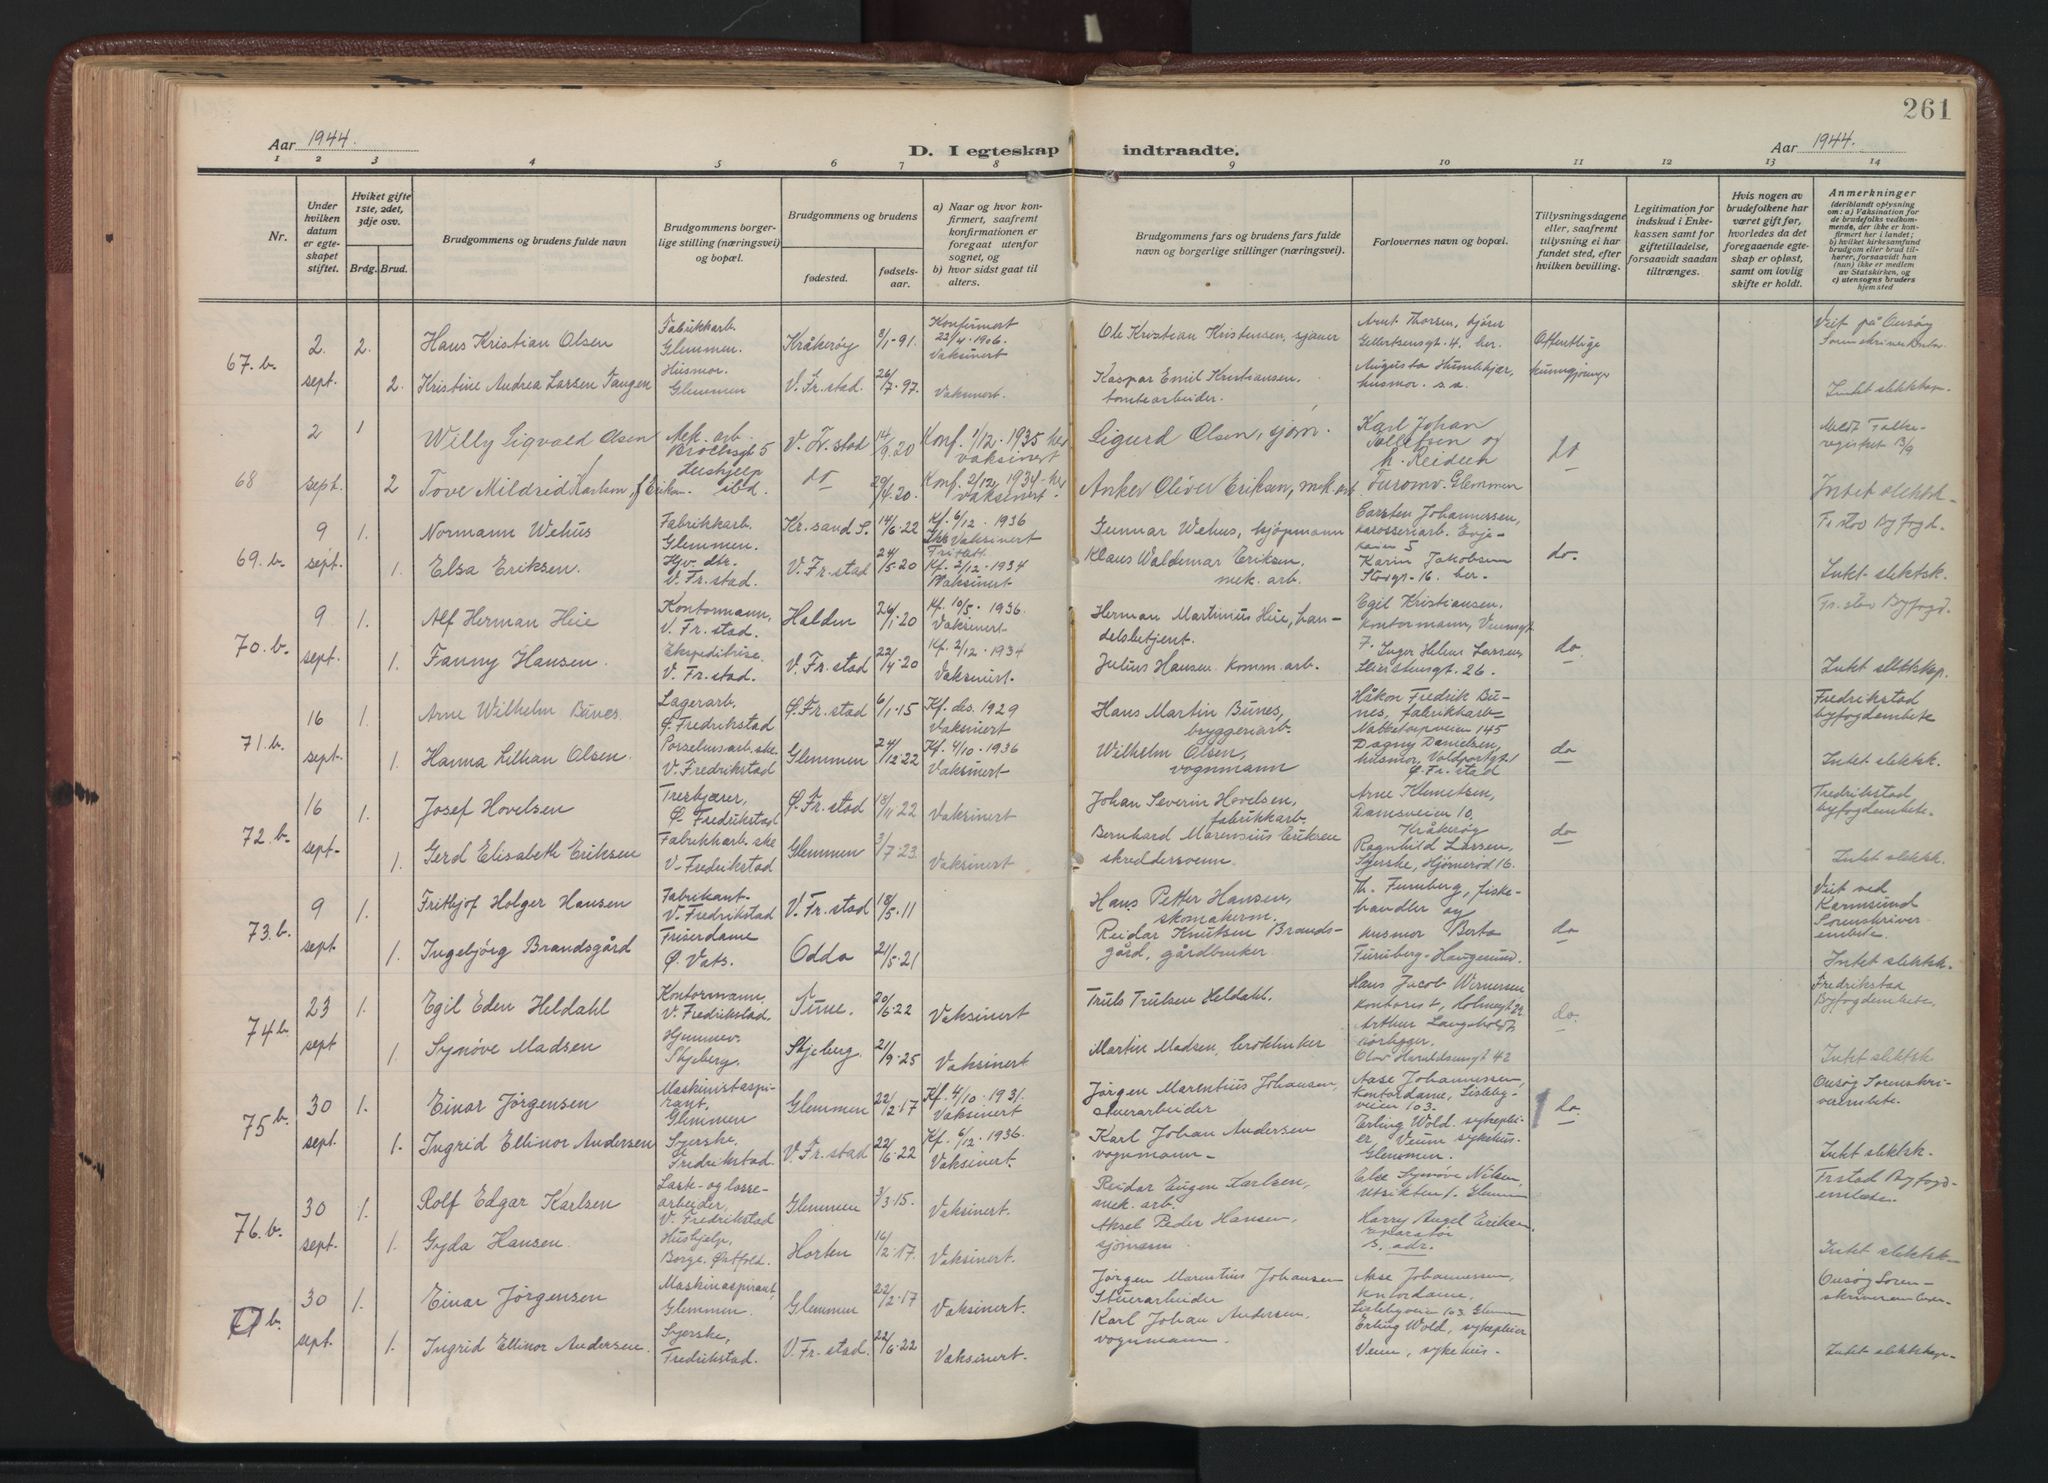 261
Aar 1944.
D. I egteskap indtraadte.
Aar 1944.
1 2 3 4 5 6 7 8 9 10 11 12 13 14
Nr.
Under hvilken datum er egteskapet stiftet.
Hviket gifte 1ste, 2det, 3dje osv.
Brdg. Brud.
Brudgommens og brudens fulde navn
Brudgommens borgerlige stilling (næringsvei) og bopæl.
Brudgommens og brudens
fødested.
fødselsaar.
a) Naar og hvor konfirmert, saafremt konfirmationen er foregaat utenfor sognet, og
b) hvor sidst gaat til alters.
Brudgommens fars og brudens fars fulde navn og borgerlige stillinger (næringsvei).
Forlovernes navn og bopæl.
Tillysningsdagene eller, saafremt tillysning ei har fundet sted, efter hvilken bevilling.
Legitimation for indskud i Enkekassen samt for giftetilladelse, forsaavidt saadan tiltrænges.
Hvis nogen av brudefolkene har været gift før, hvorledes da det foregaaende egteskap er opløst, samt om lovlig skifte er holdt.
Anmerkninger
(deriblandt oplysning om: a) Vaksination for de brudefolks vedkommende, der ikke er konfirmert her i landet; b) hvilket kirkesamfund brudgom eller brud tilhører, forsaavidt han (hun) ikke er medlem av Statskirken, og c) utensogns bruders hjemsted
67.b. 2. sept. 2. Hans Kristian Olsen Fabrikkarb. Glemmen. Kråkerøy 8/1-91. Konfirmert 22/4 1906. Vaksinert Ole Kristian Kristensen, sjauer Arnt Thorsen, Gellertsensgt. 4. her. Offentlige kunngjøringer Viet på Onsøy Sorenskriverkontor
2. Kristine Andrea Larsen Tangen Husmor. Glemmen V. Fr.stad. 26/7-97. Vaksinert. Kaspar Emil Kristiansen. tomtearbeider. Augusta Humlekjær, husmor. s.a. Intet slektskap
68 2 sept. 1 Willy Sigvald Olsen Mek. arb. Brochsgt 5 V. Fr. stad 14/9.20 Konf. 1/12.1935 her vaksinert Sigurd Olsen, sjøm. Karl Johan Tollefsen og do Meldt Folkeregistret 13/9
2 Tove Mildrid Karlson f. Eriksen Heishjelp ibd. do 29/4.20. Konf. 2/12 1934 her vaksinert. Anker Oliver Eriksen, mek. arb. Glemmen Intet slektsk.
69.b. 9 sept. 1. Normann Wehus Fabrikkarb. Glemmen. Kr.sand S. 14/6-22 Kf. 6/12.1936 Vaksinert Gunnar Wehus, kjøpmann Carsten Johannessen, karosseriarb. do. Fr.stad Byfogd.
1. Elsa Eriksen. Hjv. dtr. V. Fr.stad. V. Fr.stad 24/5-20 Kf. 2/12.1934 Vaksinert Klaus Waldemar Eriksen, mek. arb. Karin Jakobsen Storgt. 16. her. Intet slektsk.
70.b. 9 sept. 1. Alf Herman Heie Kontormann, V. Fr.stad. Halden 26/1-20 Kf. 10/5.1936. Vaksinert Herman Martinius Heie, handelsbetjent. Egil Kristiansen, kontormann, Veumsgt 7. do. Fr.stad Byfogd.
1. Fanny Hansen. Ekspeditrise. V. Fr.stad. V. Fr.stad 22/4-20 Kf. 2/12.1934 Vaksinert. Julius Hansen. komm. arb. Inger Helene Larsen, 26. Intet slektskap.
71.b. 16 sept. 1. Arne Wilhelm Bunes. Lagerarb. Ø. Fredrikstad Ø. Fr.stad 6/1-15 Kf. des. 1929 Vaksinert Hans Martin Bunes, bryggeriarb. Håkon Fredrik Bunes, fabrikkarb. Nabbetorpveien 145 do Fredrikstad byfogdembete
1. Hanna Lillian Olsen. Porselensarb.ske. V. Fredrikstad Glemmen 24/12-22 Kf. 4/10.1936 Vaksinert Wilhelm Olsen, vognmann Dagny Danielsen, husmor, Voldportgt. 1 Ø. Fr.stad Intet slektsk.
72.b. 16 sept. 1. Josef Hovelsen Trebjærer, Ø. Fredrikstad Ø. Fr.stad 18/11-22 Vaksinert Johan Severin Hovelsen, fabrikkarb. Arne Klemetsen, Damsveien 10. Kråkerøy do Fredrikstad byfogdembete.
1. Gerd Elisabeth Eriksen Fabrikkarb.ske V. Fredrikstad Glemmen 3/7-23. Vaksinert Bernhard Marensius Eriksen skreddersvenn. Ragnhild Larsen, Syerske, Hjørnerød 16. Intet slektsk.
73.b. 9 sept. 1. Frithjof Holger Hansen Fabrikant V. Fredrikstad V. Fr.stad 18/5-11 Hans Petter Hansen, skomakerm. Th. Furuberg, fiskehandler og do Viet ved Karmsund Sorenskriverembete.
1. Ingebjørg Brandsgård Friserdame Ø. Vats. Odda 21/5-21 Reidar Knutsen Brandsgård, gårdbruker. husmor Berta Furuberg - Haugesund. Intet slektsk.
74b 23 sept 1. Egil Eden Heldahl Kontormann, V. Fredrikstad. Tune. 20/6-22 Vaksinert Truls Trulsen Heldahl. Hans Jacob Wernersen kontorist, Holmegt 22. do. Fredrikstad Byfogdembete.
1. Synøve Madsen Hjemmev. Skjeberg. Skjeberg. 21/9-25 Vaksinert. Martin Madsen, brukbruker Arthur Langholdt Olav Haraldsensgt 42 Intet slektsk
75b. 30 sept. 1. Einar Jørgensen Maskinistaspirant, Glemmen Glemmen 22/12-17 Kf. 4/10.1931. Vaksinert Jørgen Marentius Johansen, stuerarbeider Aase Johannessen, kontordame, Lislebyveien 103. do. Onsøy Sorenskriverembete.
1. Ingrid Ellinor Andersen Syerske, Fredrikstad. V. Fr.stad 22/6-22 Kf. 6/12.1936. Vaksinert. Karl Johan Andersen vognmann. Erling Wold. sykepleier, Veum sykehus. Glemmen. Intet slektsk.
76.b. 30 sept. 1. Rolf Edgar Karlsen Laste- og lossearbeider, V. Fredrikstad Glemmen 3/3-15. Vaksinert. Reidar Eugen Karlsen, mek. arb. Else Synøve Nilsen, Glemmen Fr.stad Byfogdembete.
1. Gyda Hansen. Hushjelp, Borge. Østfold. Horten 16/2-17. Vaksinert. Aksel Peder Hansen, sjømann. Harry Angel Eriksen. reparatør s. adr. Intet slektsk.
77 b. 30 sept. 1. Einar Jørgensen Maskinaspirant, Glemmen. Glemmen 22/12-17 Vaksinert. Jørgen Marentius Johansen Stuerarbeider Aase Johannessen, kontordame. Lislebyveien 103. Glemmen Onsøy Sorenskriverembete.
1. Ingrid Ellinor Andersen. Syerske, Fredrikstad. V. Fr.stad. 22/6-22 Vaksinert. Karl Johan Andersen, vognmann. Erling Wold, sykepleier Veum, sykehus. Intet slektskap.